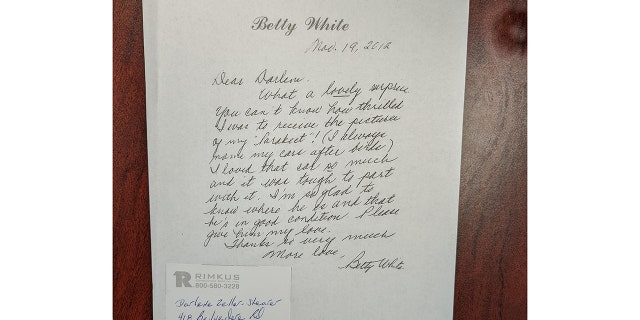 Betty White
Nov. 19, 2012
Dear Darlene.
What a lovely surprise
You can't know how thrilled
I was to receive the pictures
of my "Parakeet"! (I always
name my cars after birds.)
I loved that car so much
and it was tough to part
with it. I'm so glad to
know where he is and that
he's in good condition Please
give him my love.
Thanks so very much
More love,
Betty White
R RIMKUS
800-580-3228
Darlene
418 Belvedere Rd